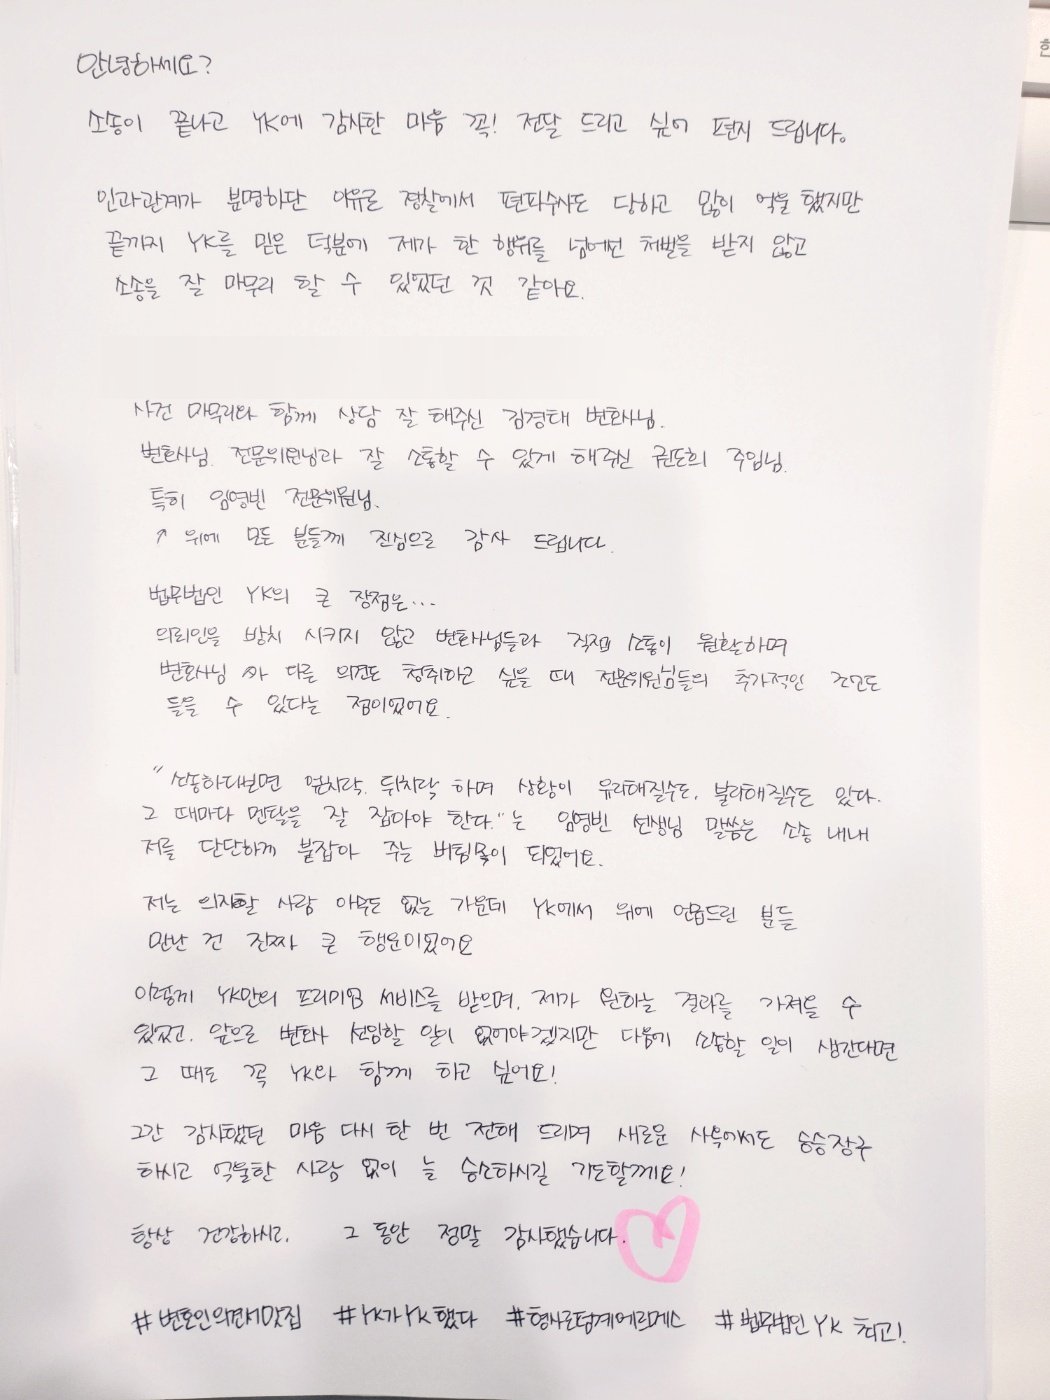 안녕하세요?
소송이 끝나고 YK에 감사한 마음 꼭! 전달 드리고 싶어 편지 드립니다.
인과관계가 분명하단 이유로 경찰에서 편파수사도 당하고 많이 억울했지만
끝까지 YK를 믿은 덕분에 제가 한 행위를 넘어선 처벌을 받지 않고
소송을 잘 마무리 할 수 있었던 것 같아요.
사건 마무리와 함께 상담 잘 해주신 김경태 변호사님.
변호사님. 전문위원님과 잘 소통할 수 있게 해주신 권도희 주임님.
특히 임영빈 전문위원님.
↑ 위에 모든 분들께 진심으로 감사 드립니다.
법무법인 YK의 큰 장점은...
의뢰인을 방치 시키지 않고 변호사님들과 직접 소통이 원활하며
변호사님 과 다른 의견도 청취하고 싶을 때 전문위원님들의 추가적인 조언도
들을 수 있다는 점이었어요.
"소송하다보면 엎치락. 뒤치락 하며 상황이 유리해질수도, 불리해질수도 있다.
그 때마다 멘탈을 잘 잡아야 한다."는 임영빈 선생님 말씀은 소송 내내
저를 단단하게 붙잡아 주는 버팀목이 되었어요.
저는 의지할 사람 아무도 없는 가운데 YK에서 위에 언급드린 분들
만난 건 진짜 큰 행운이었어요
이렇게 YK만의 프리미엄 서비스를 받으며, 제가 원하는 결과를 가져올 수
있었고. 앞으로 변호사 선임할 일이 없어야겠지만 다음에 소송할 일이 생긴다면
그 때도 꼭 YK와 함께 하고 싶어요!
그간 감사했던 마음 다시 한 번 전해 드리며 새로운 사옥에서도 승승장구
하시고 억울한 사람 없이 늘 승소하시길 기도할께요!
항상 건강하시고. 그 동안 정말 감사했습니다.
#변호인의견서맛집 #YK가YK했다 #형사로펌계에르메스 #법무법인YK 최고!